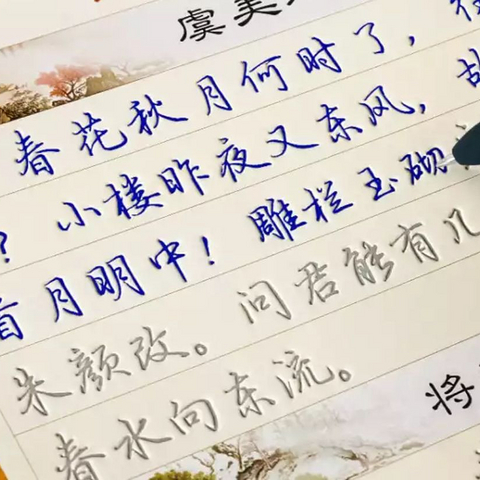 虞美
春花秋月何时了，
？小楼昨夜又东风，故
首月明中！雕栏玉砌
朱颜改。问君能有几
春水向东流。
将